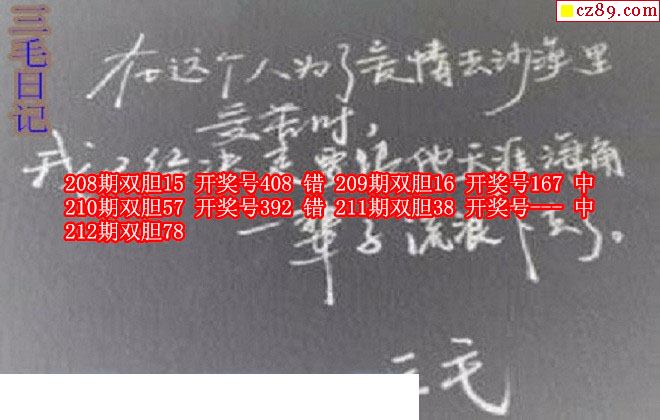 cz89.com
三毛日记
在这个人为了爱情去沙漠里
受苦时，
我已经决定要跟他天涯海角
208期双胆15 开奖号408 错 209期双胆16 开奖号167 中
210期双胆57 开奖号392 错 211期双胆38 开奖号--- 中
212期双胆78
一辈子流浪下去了。
三毛